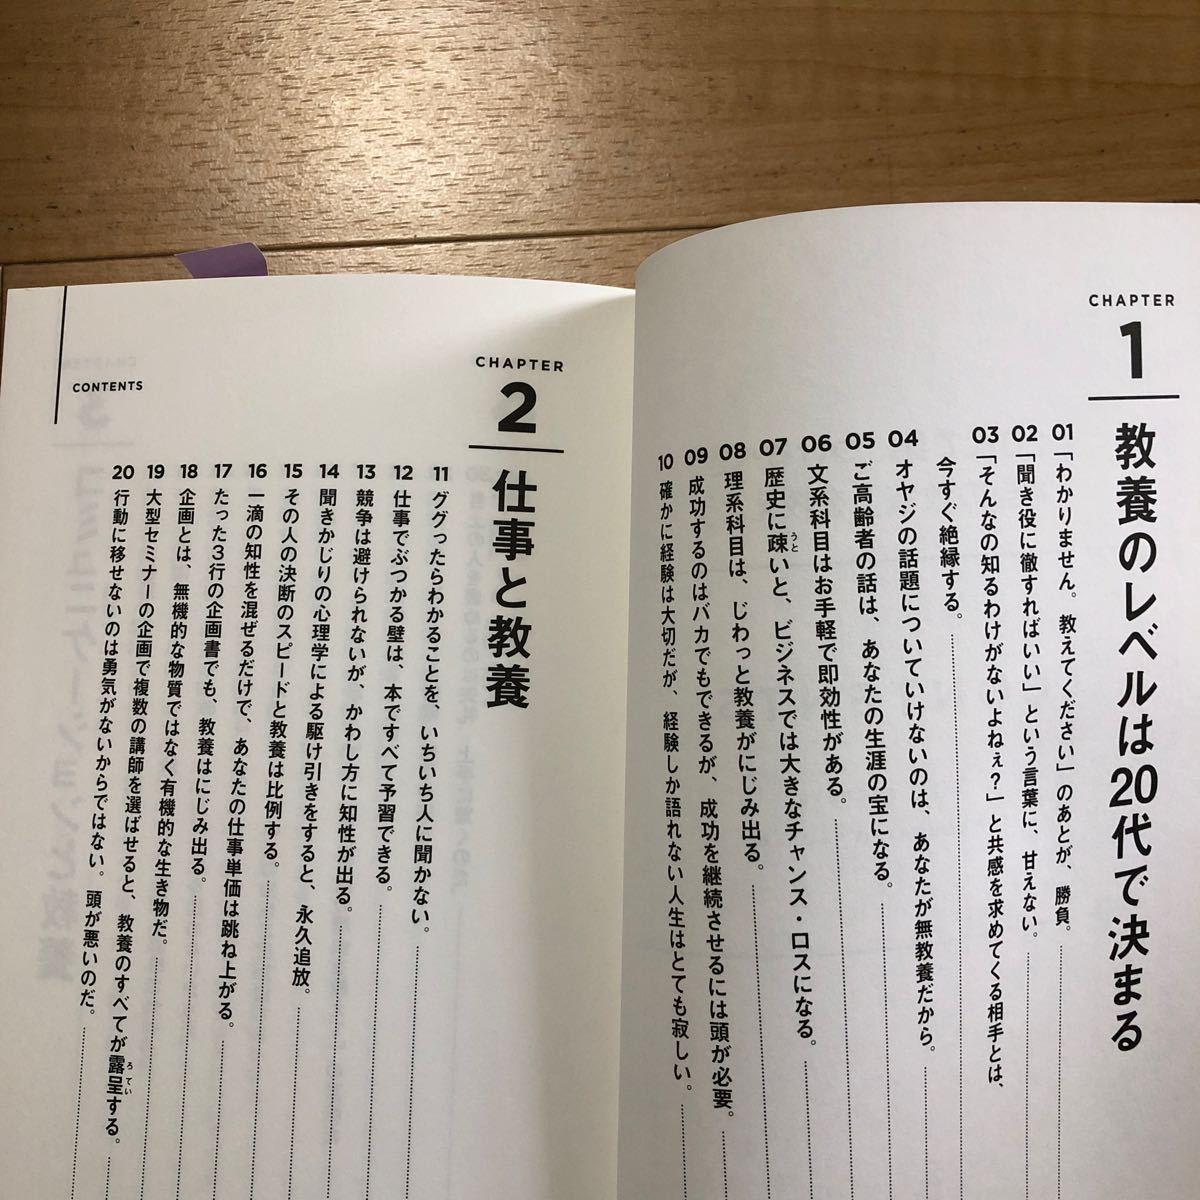 CHAPTER
1
教養のレベルは20代で決まる
01 「わかりません。教えてください」のあとが、勝負。
02 「聞き役に徹すればいい」という言葉に、甘えない。
03 「そんなの知るわけがないよねぇ?」と共感を求めてくる相手とは、
今すぐ絶縁する。
04 オヤジの話題についていけないのは、あなたが無教養だから。
05 ご高齢者の話は、あなたの生涯の宝になる。
06 文系科目はお手軽で即効性がある。
07 歴史に疎いと、ビジネスでは大きなチャンス・ロスになる。
うと
08 理系科目は、じわっと教養がにじみ出る。
09 成功するのはバカでもできるが、成功を継続させるには頭が必要。
10 確かに経験は大切だが、経験しか語れない人生はとても寂しい。
CHAPTER
2
仕事と教養
11 ググったらわかることを、いちいち人に聞かない。
12 仕事でぶつかる壁は、本ですべて予習できる。
13 競争は避けられないが、かわし方に知性が出る。
14 聞きかじりの心理学による駆け引きをすると、永久追放。
15 その人の決断のスピードと教養は比例する。
16 一滴の知性を混ぜるだけで、あなたの仕事単価は跳ね上がる。
17 たった3行の企画書でも、教養はにじみ出る。
18 企画とは、無機的な物質ではなく有機的な生き物だ。
19 大型セミナーの企画で複数の講師を選ばせると、教養のすべてが露呈する。
ろてい
20 行動に移せないのは勇気がないからではない。頭が悪いのだ。
CONTENTS